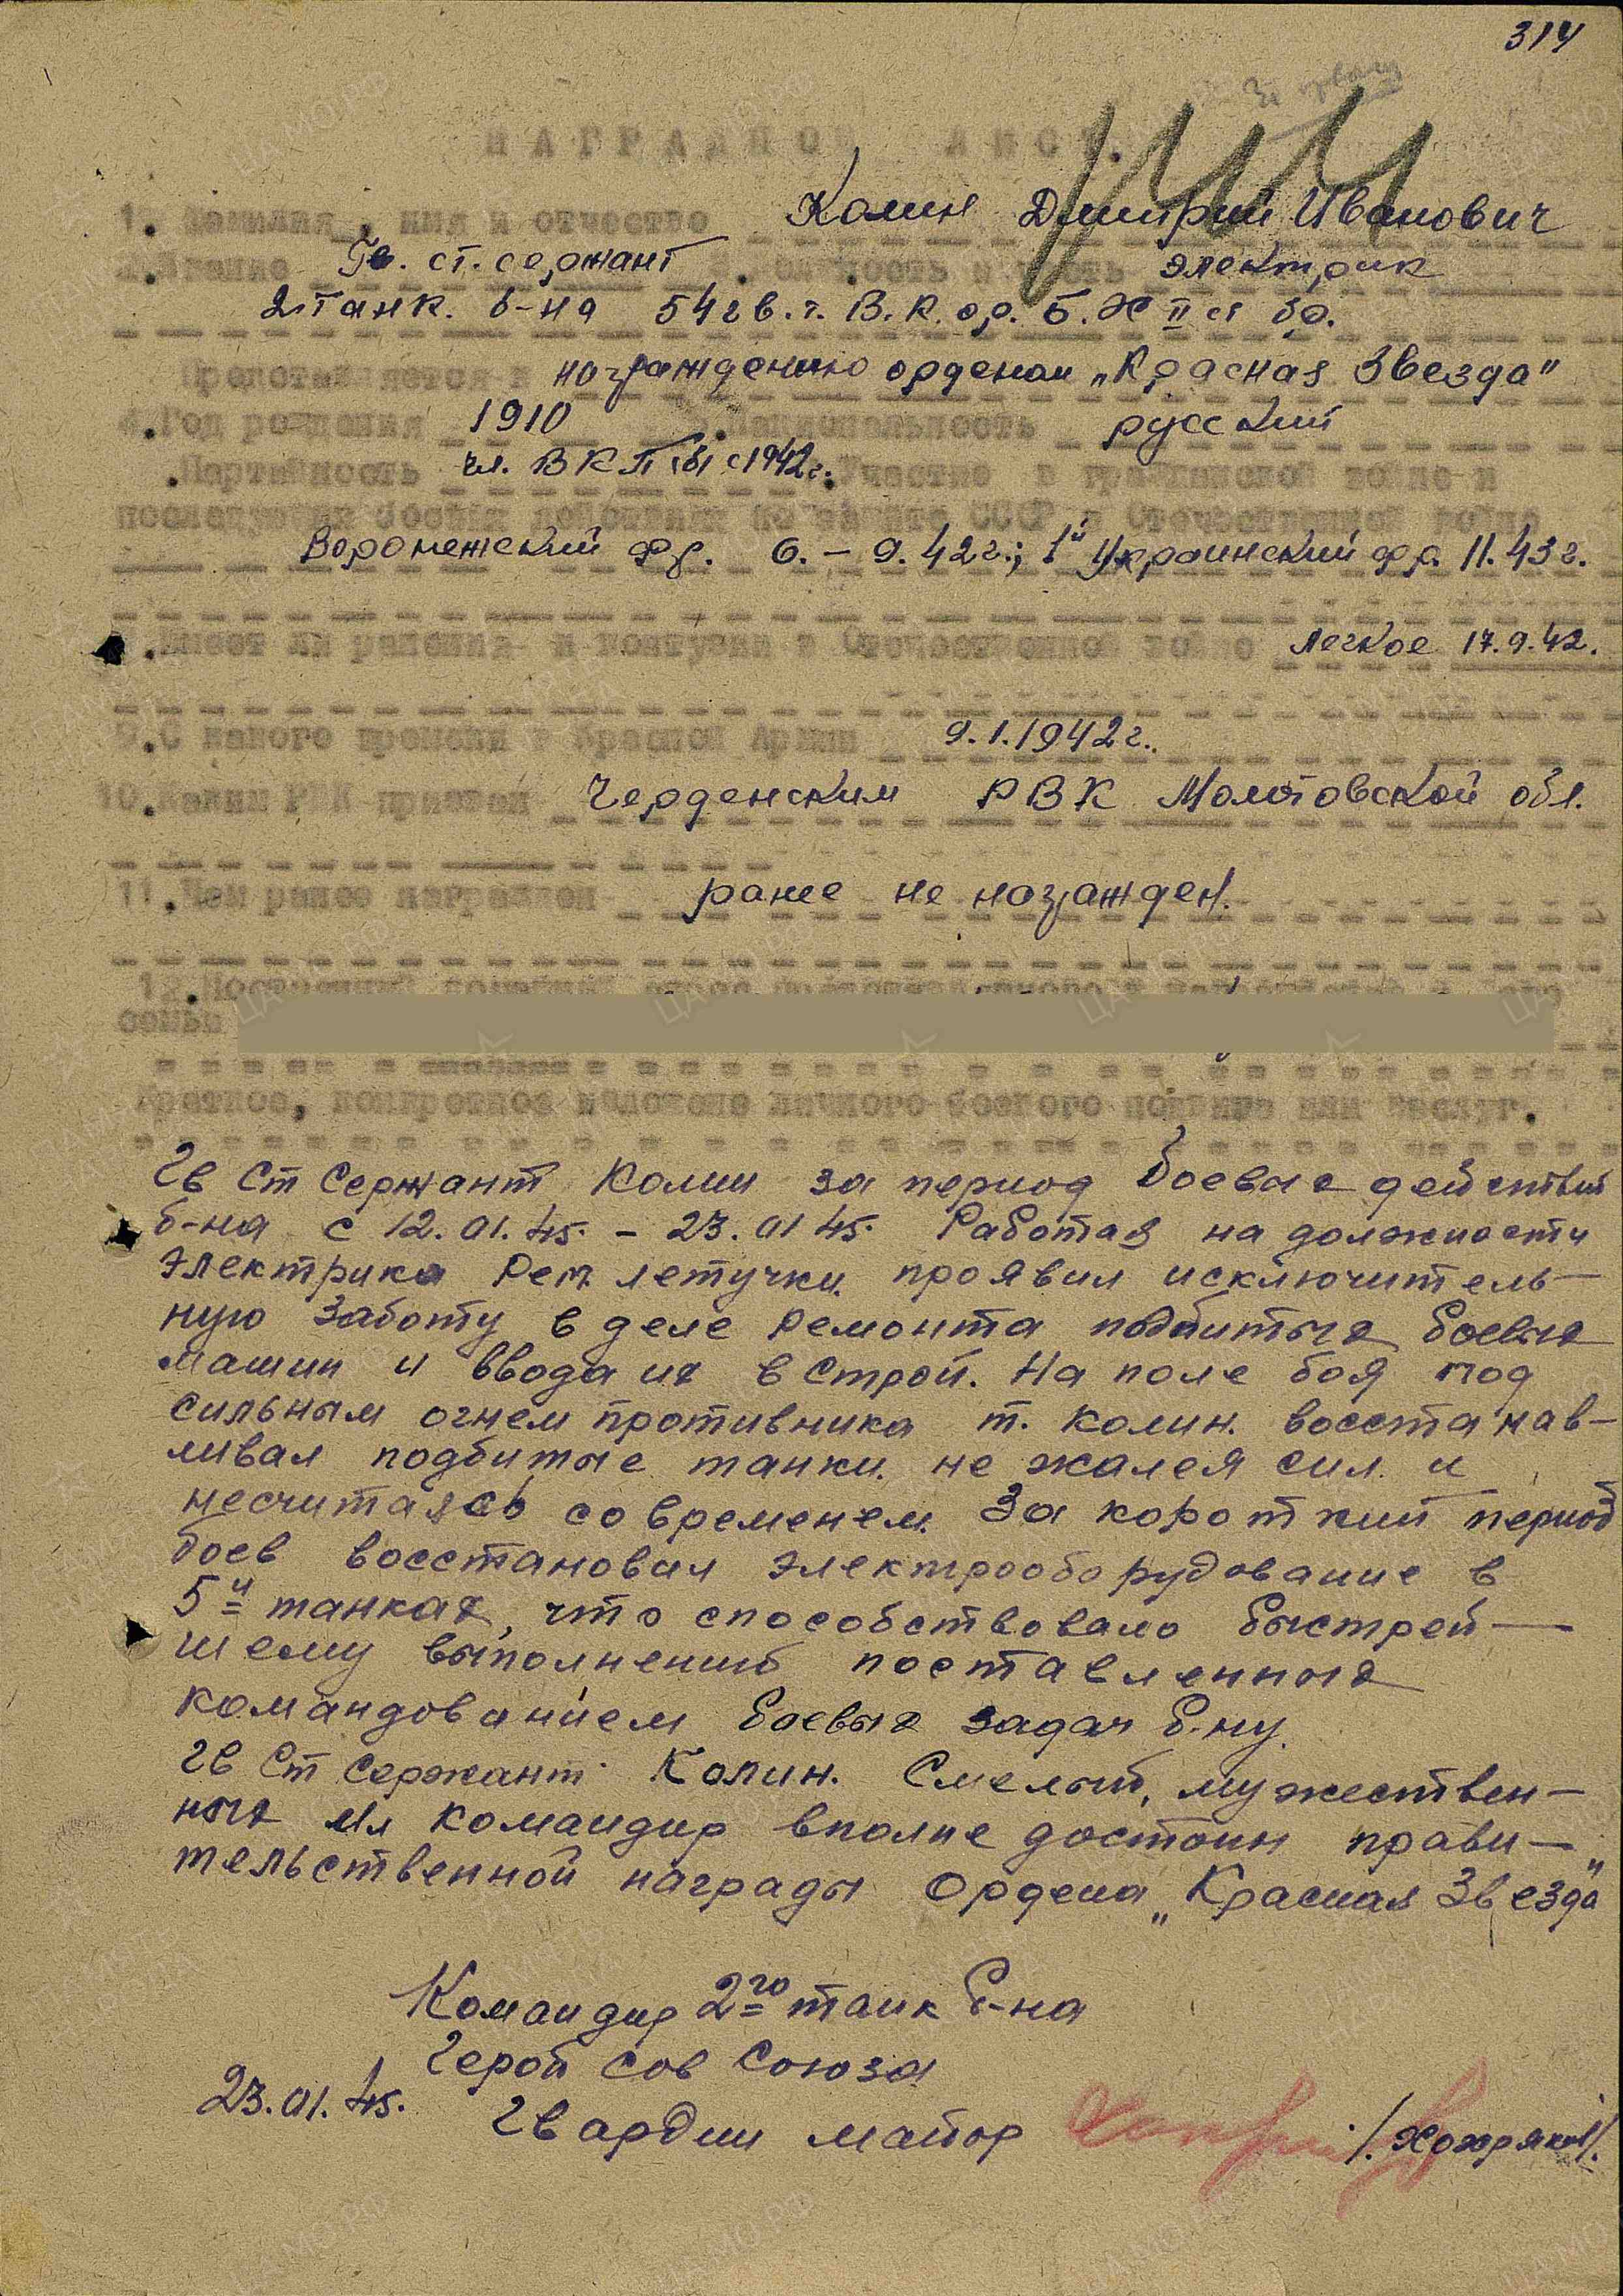 314
НАГРАДНОЙ ЛИСТ.
1. Фамилия, имя и отчество Колин Дмитрий Иванович
2. Звание Гв. ст. сержант 3. Должность и часть электрик
2 танк. б-на 54 гв. т. В. К. ор. Б. Х II ст бр.
Представляется к награждению орденом „Красная Звезда"
4. Год рождения 1910 5. Национальность русский
6. Партийность чл. ВКП(б) с 1942 г. 7. Участие в гражданской войне и
последующих боевых действиях по защите СССР и Отечественной войне
Воронежский фр. 6. – 9. 42 г.; 1й Украинский фр. 11. 43 г.
8. Имеет ли ранения и контузии в Отечественной войне легкое 17.9.42.
9. С какого времени в Красной Армии 9.1.1942 г..
10. Каким РВК призван Черденским РВК Молотовской обл.
11. Чем ранее награжден ранее не награжден.
12. Постоянный домашний адрес представляемого к награждению и его
семьи
Краткое, конкретное изложение личного боевого подвига или заслуг.
Гв Ст Сержант Колин за период боевых действий
б-на с 12.01.45. – 23.01 45. Работая на должности
электрика Рем летучки. проявил исключитель-
ную заботу в деле ремонта подбитых боевых
машин и ввода их в строй. На поле боя под
сильным огнем противника т. Колин. восстанав-
ливал подбитые танки. не жалея сил и
несчитаясь со временем. За короткий период
боев восстановил электрооборудование в
5и танках, что способствовало быстрей-
шему выполнению поставленных
командованием боевых задач б-ну.
Гв Ст Сержант Колин. Смелый, мужествен-
ных мл командир вполне достоин прави-
тельственной награды Ордена „Красная Звезда"
Командир 2го танк б-на
Герой Сов Союза
23.01.45.
Гвардии майор /. Хохряков/.
ЦАМО.РФ